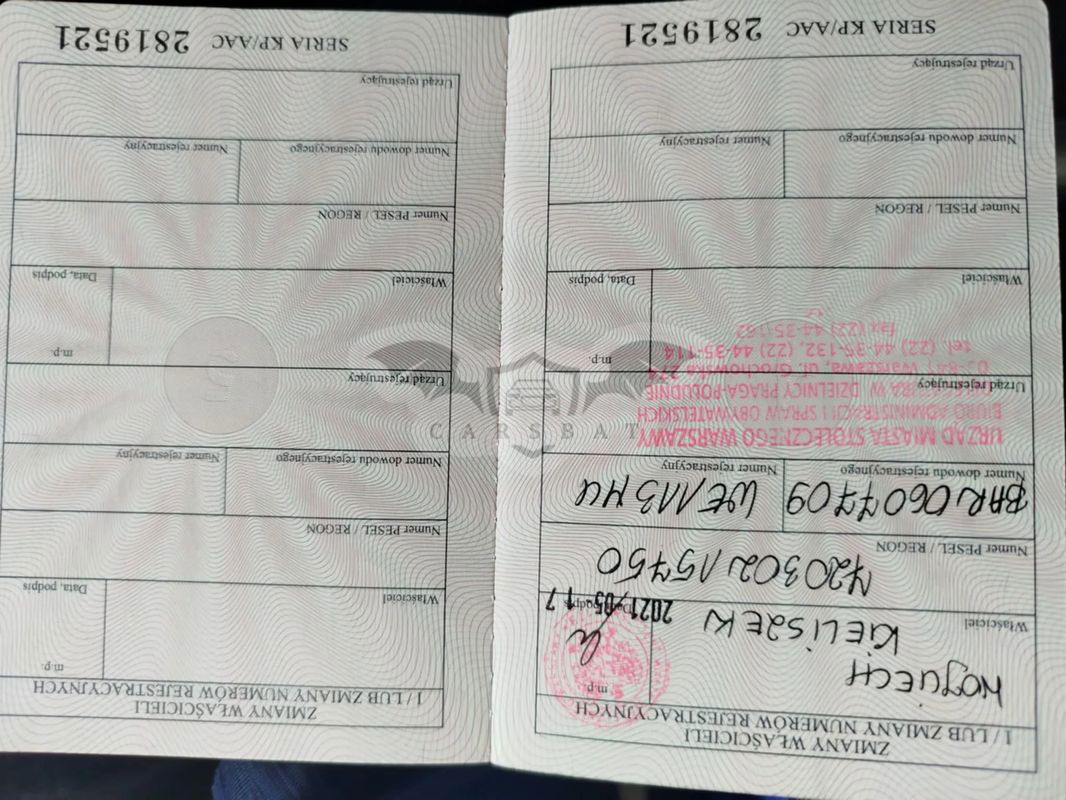 ZMIANY WŁAŚCICIELI
I / LUB ZMIANY NUMERÓW REJESTRACYJNYCH
WOJCIECH
m.p.
Właściciel
KIELISZEK
Data, podpis
2021/05/17
Numer PESEL / REGON
72030215750
Numer dowodu rejestracyjnego
Numer rejestracyjny
BAR/0607709
Urząd rejestrujący
URZĄD MIASTA STOŁECZNEGO WARSZAWY
BIURO ADMINISTRACJI I SPRAW OBYWATELSKICH
DELEGATURA W DZIELNICY PRAGA-POŁUDNIE
Warszawa, ul. Grochowska 274
tel. (22) 44-35-132, (22) 44-35-114
fax (22) 44-35-162
m.p.
Właściciel
Data, podpis
Numer PESEL / REGON
Numer dowodu rejestracyjnego
Numer rejestracyjny
Urząd rejestrujący
SERIA KP/AAC 2819521
ZMIANY WŁAŚCICIELI
I / LUB ZMIANY NUMERÓW REJESTRACYJNYCH
m.p.
Właściciel
Data, podpis
Numer PESEL / REGON
Numer dowodu rejestracyjnego
Numer rejestracyjny
Urząd rejestrujący
m.p.
Właściciel
Data, podpis
Numer PESEL / REGON
Numer dowodu rejestracyjnego
Numer rejestracyjny
Urząd rejestrujący
SERIA KP/AAC 2819521
CARSBAT